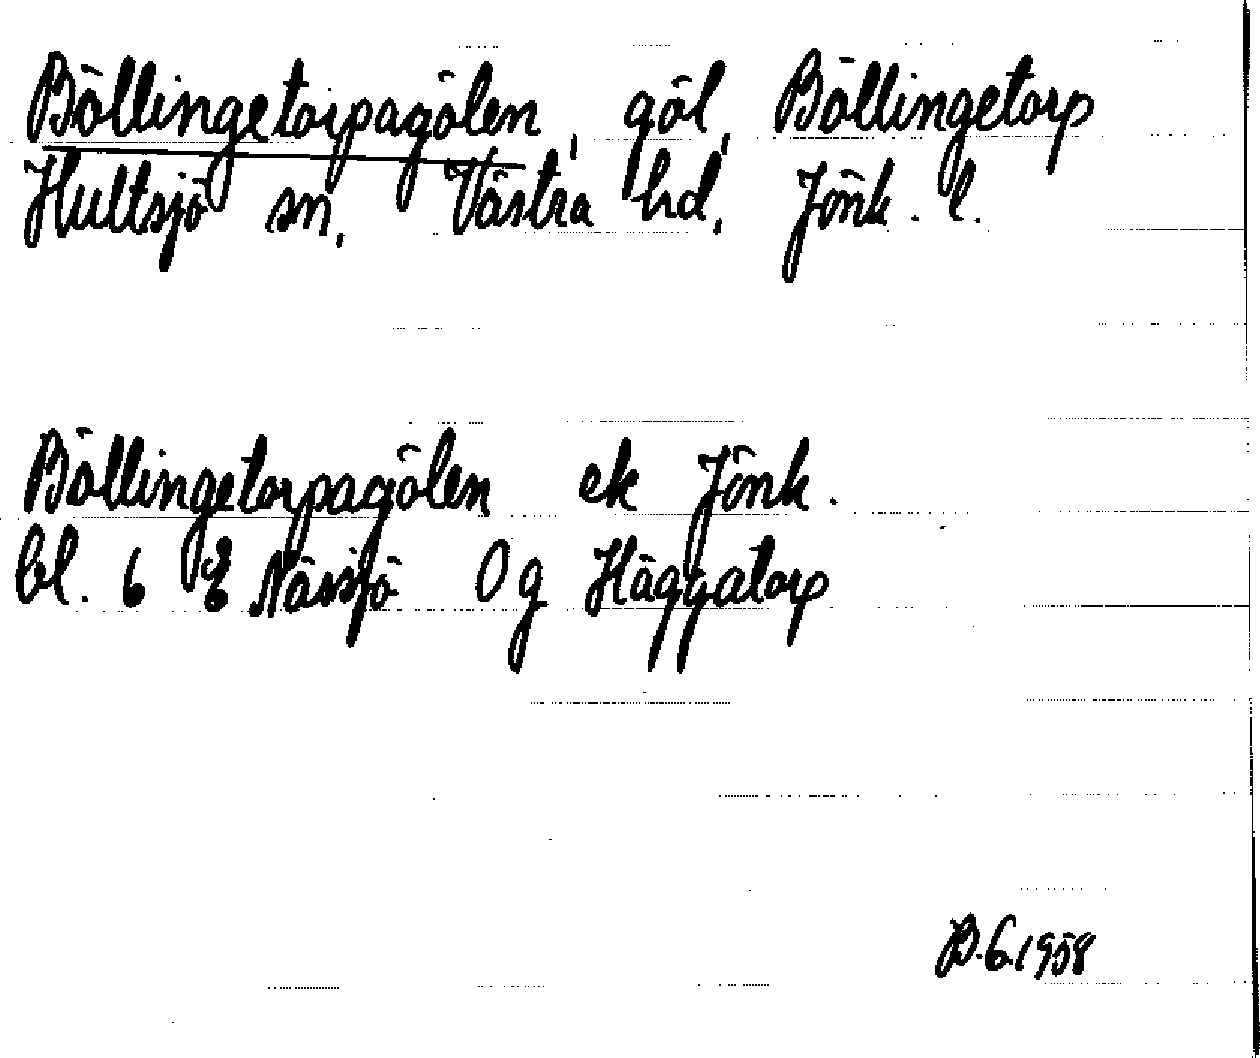 Böllingetorpagölen, göl, Böllingetorp
Hultsjö sn, Västra hd, Jönk. l.
Böllingetorpagölen ek Jönk.
bl. 6 E Nässjö 0g Häggatorp
B.G.1958